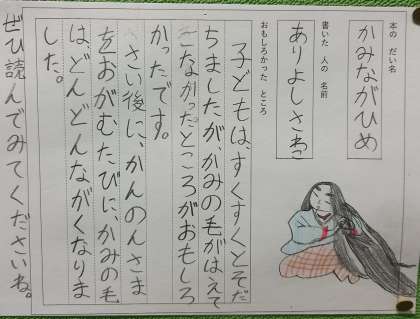 本の だい名
かみながひめ
書いた 人の 名前
ありよしさわこ
おもしろかった ところ
子どもは、すくすくとそだ
ちましたが、かみの毛がはえて
こなかったところがおもしろ
かったです。
さい後に、かんのんさま
をおがむたびに、かみの毛
は、どんどんながくなりま
した。
ぜひ読んでみてくださいね。